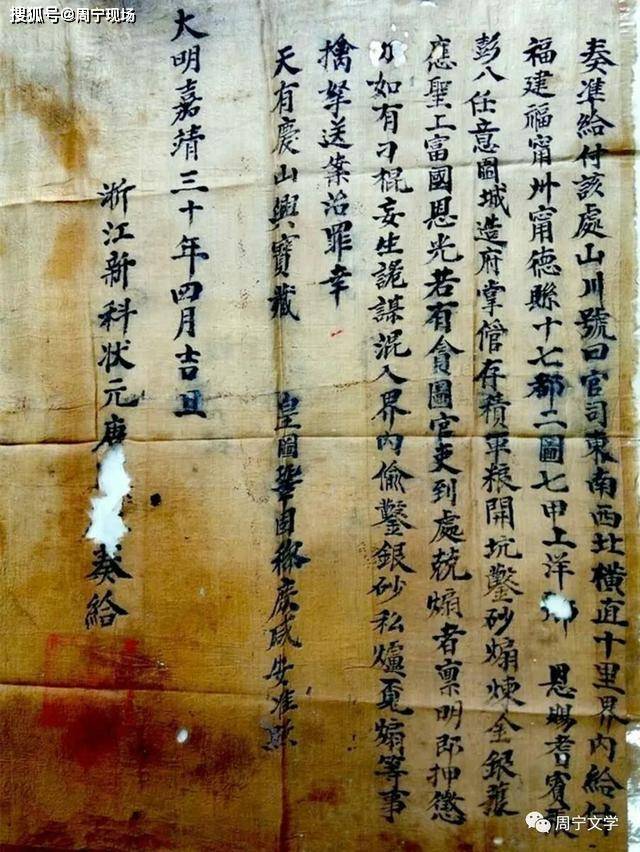 搜狐号@周宁现场
奏准給付該處山川號曰官司東南西北橫直十里界内給付
福建福甯州甯德縣十七都二圖七甲上洋 恩賜耆賓
彭八任意圖城造府掌管存積軍粮開坑鑿砂煽煉金銀
應聖上富國恩光若有貪圖官吏到處競煽者禀明即押懲
如有刁棍妄生詭謀混入界内偷鑿銀砂私爐煽等事
擒拏送案治罪幸
天有慶山興寶藏 皇圖鞏固稱慶咸安准照
大明嘉靖三十年四月吉旦
浙江新科状元唐 奏給
周宁文学